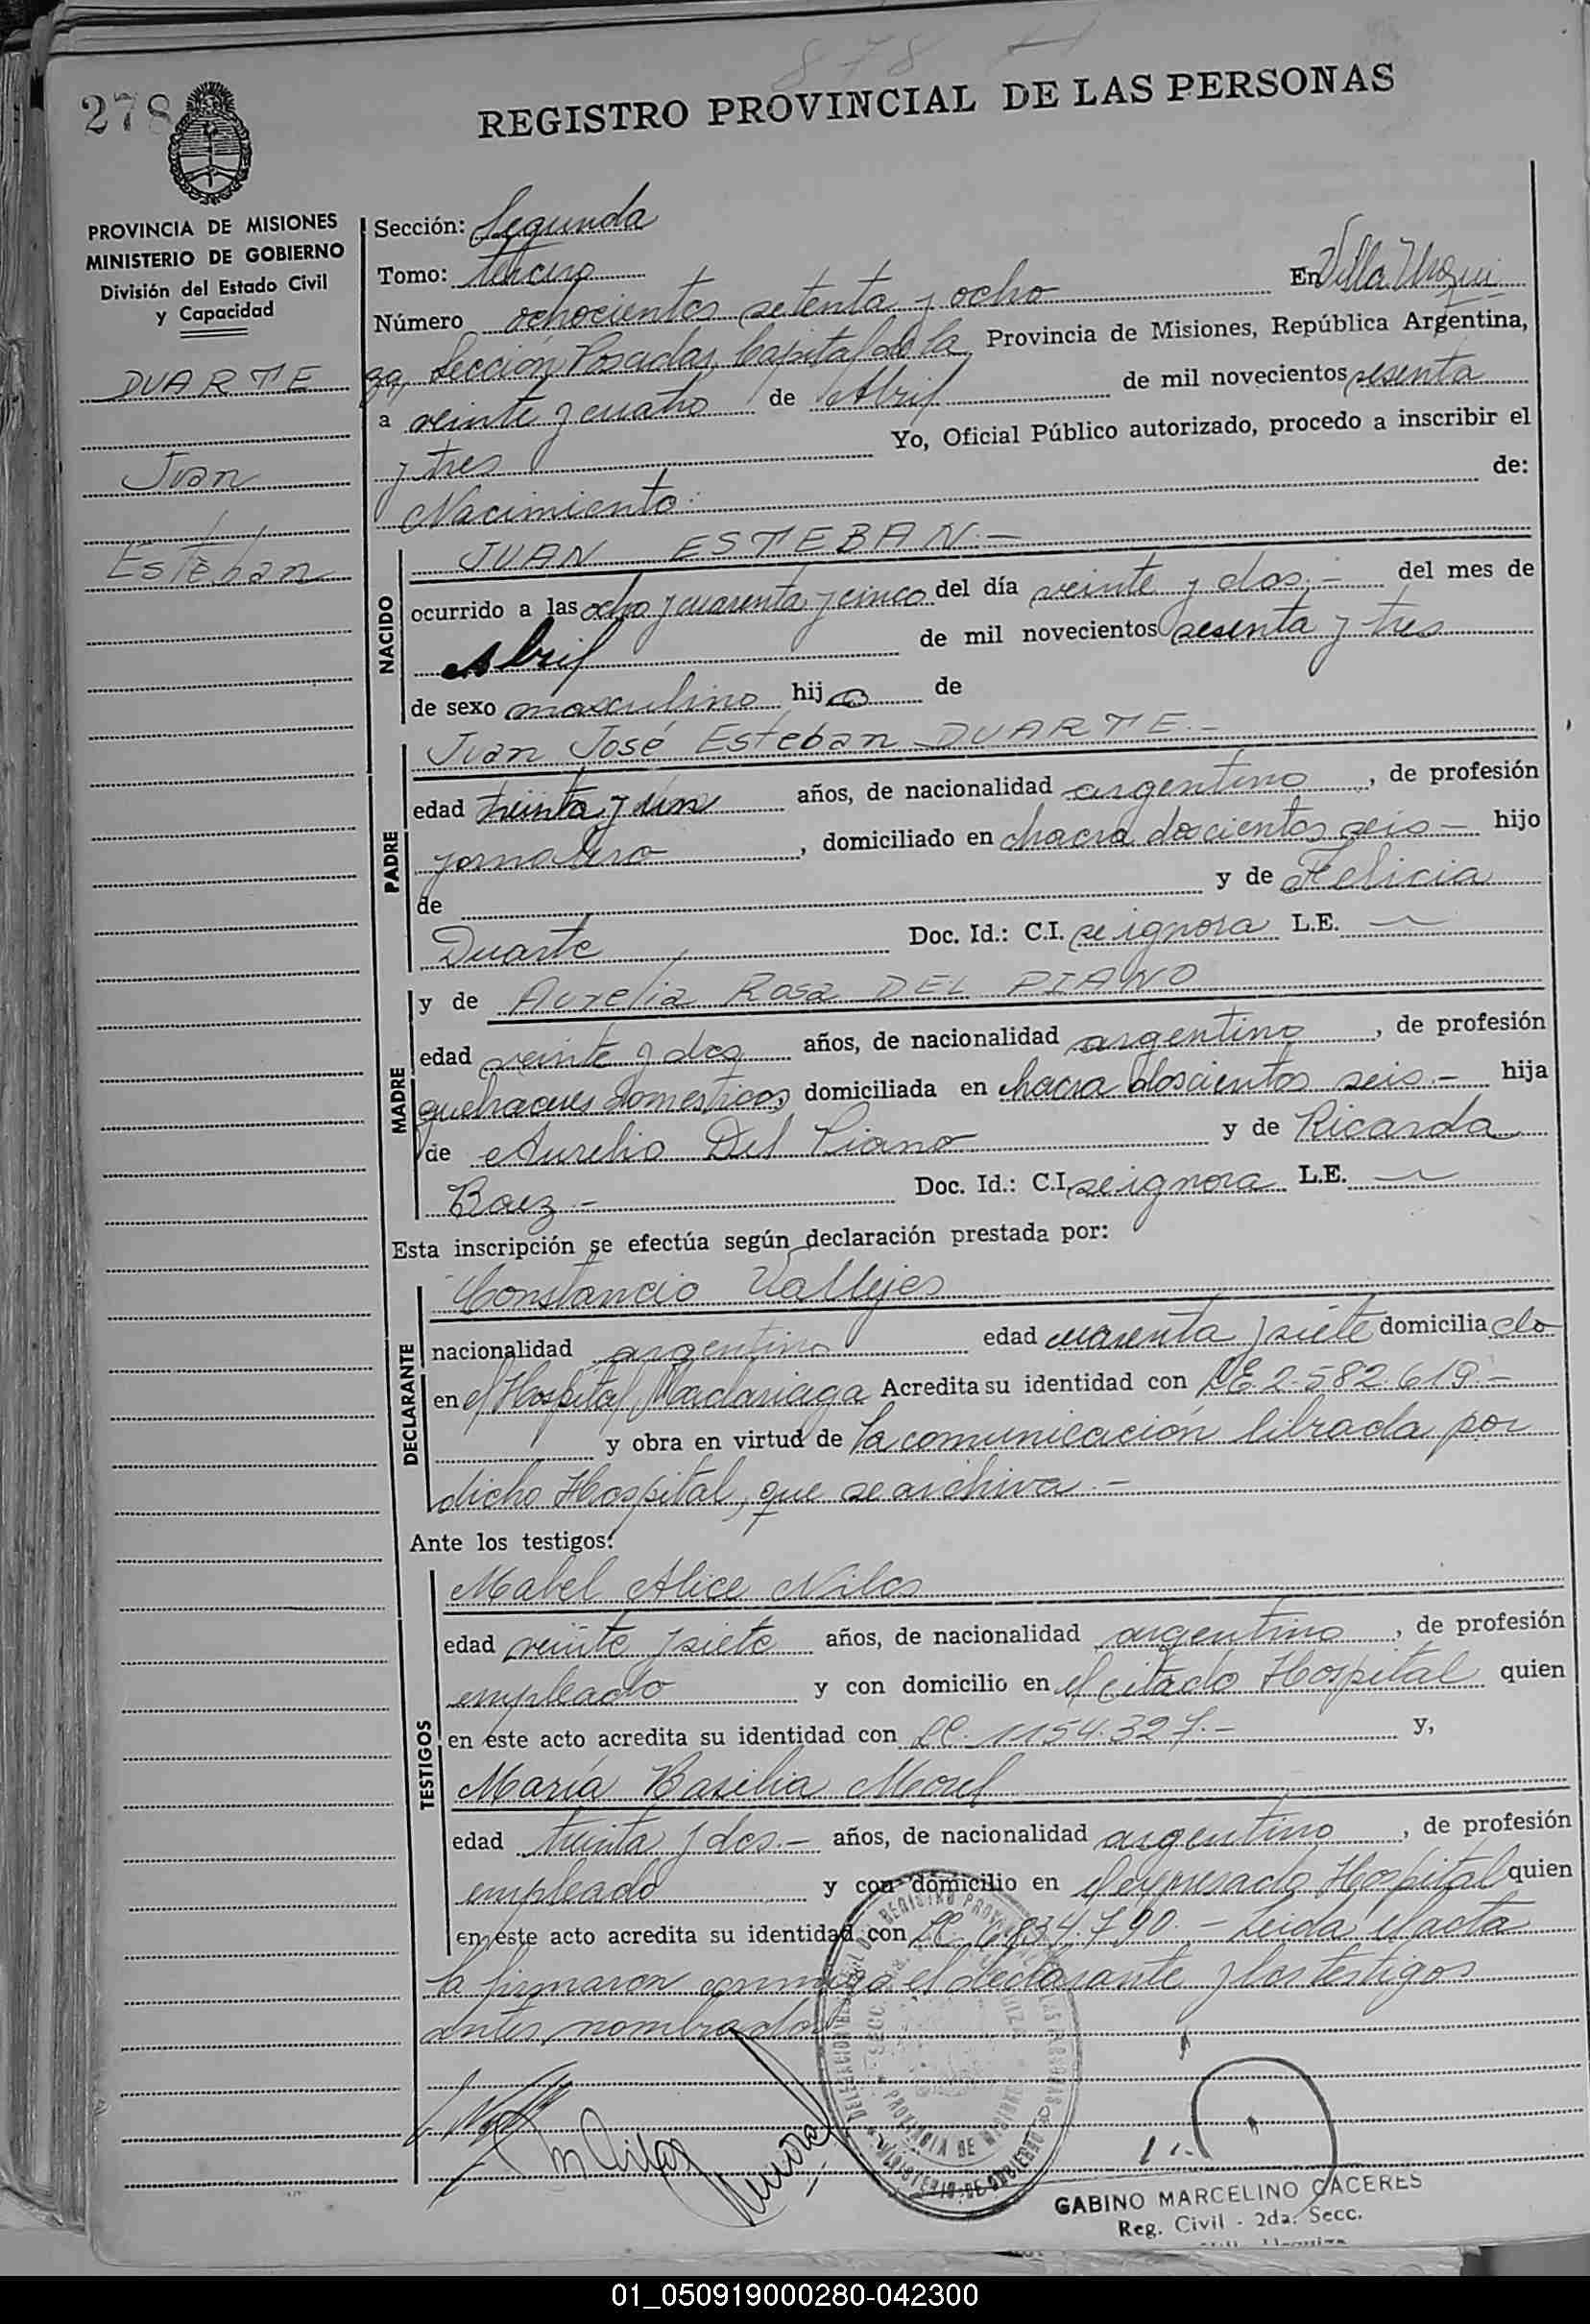 878
278
REGISTRO PROVINCIAL DE LAS PERSONAS
PROVINCIA DE MISIONES
MINISTERIO DE GOBIERNO
División del Estado Civil
y Capacidad
DUARTE
Juan
Esteban
Sección: Segunda
Tomo: tercero
Número ochocientos setenta y ocho En Villa Urqui
za, Sección Posadas, Capital de la Provincia de Misiones, República Argentina,
a veinte y cuatro de Abril de mil novecientos sesenta
y tres Yo, Oficial Público autorizado, procedo a inscribir el
Nacimiento: de:
NACIDO
JUAN ESTEBAN.-
ocurrido a las ocho y cuarenta y cinco del día veinte y dos.- del mes de
Abril de mil novecientos sesenta y tres
de sexo masculino hijo de
PADRE
Juan José Esteban DUARTE.-
edad treinta y un años, de nacionalidad argentino, de profesión
jornalero, domiciliado en chacra doscientos seis - hijo
de y de Felicia
Duarte Doc. Id.: C.I. se ignora L.E. —
MADRE
y de Aurelia Rosa DEL PIANO
edad veinte y dos años, de nacionalidad argentina, de profesión
quehaceres domesticos domiciliada en chacra doscientos seis.- hija
de Aurelio Del Piano y de Ricarda
Baez - Doc. Id.: C.I. se ignora L.E. —
Esta inscripción se efectúa según declaración prestada por:
DECLARANTE
Constancio Vallejos
nacionalidad argentino edad cuarenta y siete domiciliado
en el Hospital Madariaga Acredita su identidad con LE. 2.582.619.-
y obra en virtud de la comunicación librada por
dicho Hospital, que se archiva.-
Ante los testigos:
TESTIGOS
Mabel Alice
edad veinte y siete años, de nacionalidad argentino, de profesión
empleado y con domicilio en el citado Hospital quien
en este acto acredita su identidad con LC. 1154.327.- y,
María Basilia Morel
edad treinta y dos.- años, de nacionalidad argentino, de profesión
empleado y con domicilio en el expresado Hospital quien
en este acto acredita su identidad con LC. 6.834.790.- Leida el acta
la firmaron conmigo el declarante y los testigos
antes nombrados
GABINO MARCELINO CACERES
Reg. Civil - 2da. Secc.
01_050919000280-042300